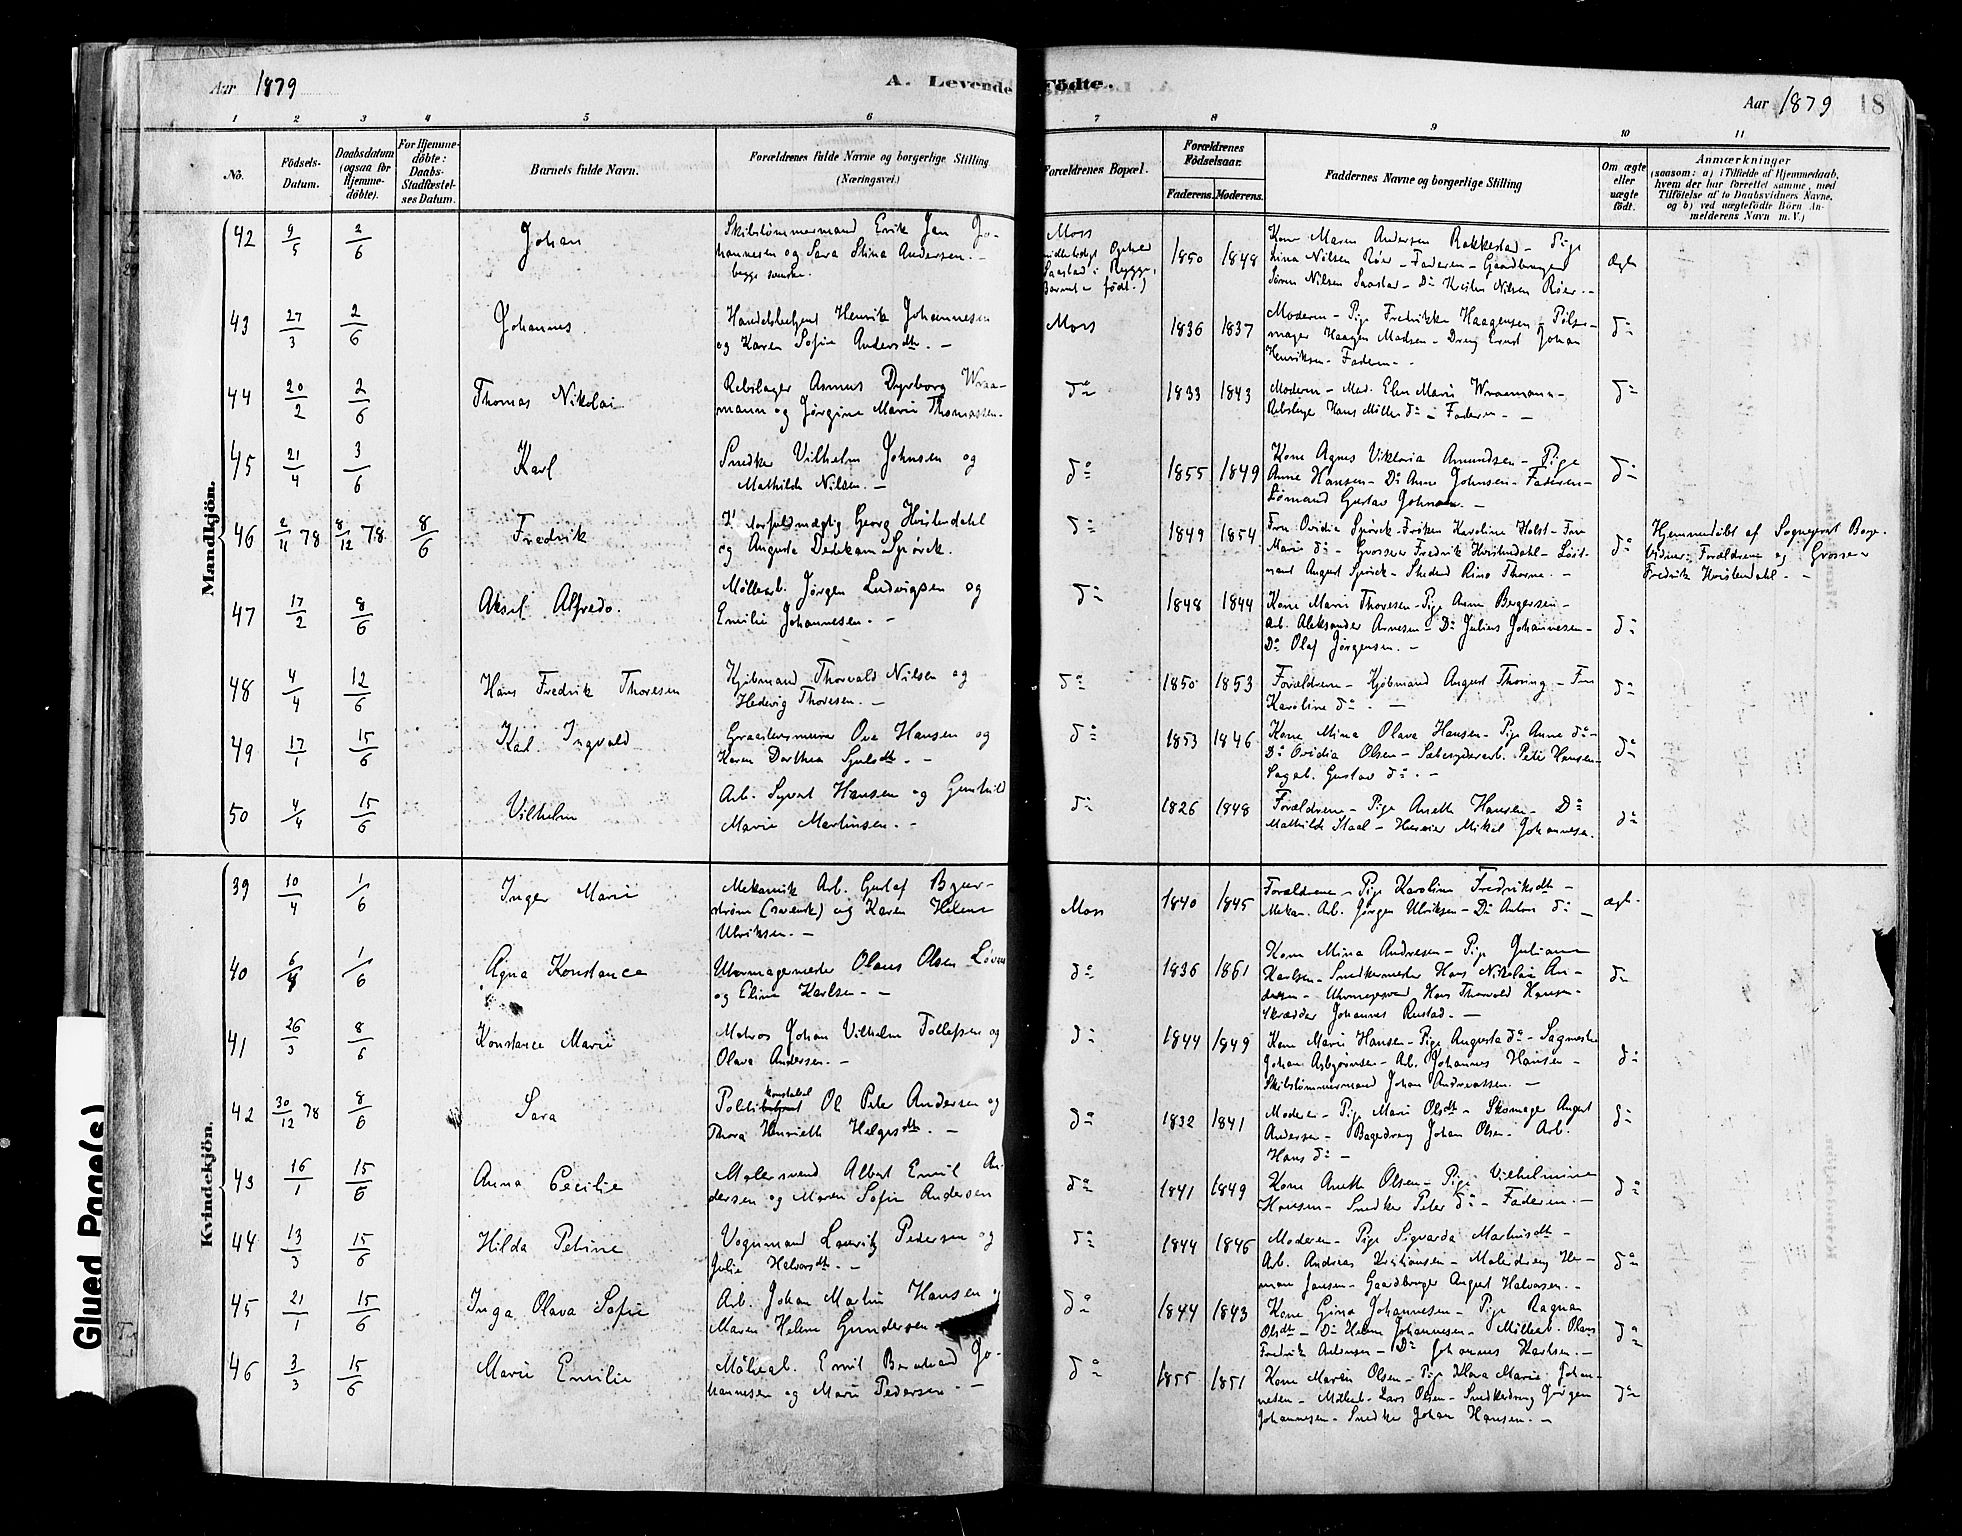 Aar 1879
A. Levende Födte.
Aar 1879 18
1 2 3 4 5 6 7 8 9 10 11
No.
Födsels-Datum.
Daabsdatum (ogsaa for Hjemme-döbte).
For Hjemme-döbte: Daabs-Stadfæstel-ses Datum.
Barnets fulde Navn.
Forældrenes fulde Navne og borgerlige Stilling (Næringsvei.)
Forældrenes Bopæl.
Forældrenes Födselsaar.
Faderens. Moderens.
Faddernes Navne og borgerlige Stilling
Om ægte eller uægte födt.
Anmærkninger
(saasom: a) i Tilfælde af Hjemmedaab, hvem der har forrettet samme, med Tilföielse af to Daabsvidners Navne, og b) ved uægtefödte Börn Anmelderens Navn m. V.)
Mandkjön.
42 9/5 2/6 Johan
Skibstømmermand Erik Jan Jo-
hannesen og Sara Stina Andersen. -
begge svenske.
Moss
1850 1848
Kone Maren Andersen Rakkestad - Pige
Lina Nilsen Röer - Faderen - Gaardbruger
Sören Nilsen Saastad - Do Nilsen Röer. -
Ægte
43 27/3 2/6 Johannes
Handelsbetjent Henrik Johannesen
og Karen Sofie Andersdtr. -
Moss 1836 1837
Moderen - Pige Fredrikke Haagensen - Pølse-
mager Haagen Madsen - Dreng Ernst Johan
Henriksen - Faderen - do
44 20/2 2/6 Thomas Nikolai
Rebslager Asmus Dyrborg Wraa-
mann og Jørgine Marie Thomassen.
do 1833 1843
Moderen - Mad. Elen Marie Wraamann -
Rebslager Hans Möller do - Faderen - do
45 21/4 3/6 Karl
Snedker Vilhelm Johnsen og
Mathilde Nilsen. -
do 1855 1849
Kone Agnes Viktoria Amundsen - Pige
Anne Hansen - Do Anne Johnsen - Faderen -
Sømand Gustav Johnsen. - do
46 2/11 78 8/12 78. 8/6 Fredrik
Georg Horstendahl
og Augusta Dedekam Spörck.
do 1849 1854
Fru Ovidia Spörck - Frøken Karoline Holst - Fru
Marie do - Grosserer Fredrik Horstendahl - Løit-
nant August Spörck - Student Rino Thorne. - do
Hjemmedöbt af Sognepræst
Vidner: Forældrene og Grosserer
Fredrik Horstendahl. -
47 17/2 8/6 Aksel Alfredo.
Møllearb. Jörgen Ludvigsen og
Emilie Johannesen. -
do 1848 1844
Kone Marie Thoresen - Pige Anne Bergersen -
Arb. Aleksander Arnesen - Do Julius Johannesen -
Do Olaf Jörgensen. - do
48 4/4 12/6 Hans Fredrik Thoresen
Kjöbmand Thorvald Nilsen og
Hedevig Thoresen. -
do 1850 1853
Forældrene - Kjöbmand August Thoring - Fru
Karoline do. - do
49 17/1 15/6 Karl Ingvald
Ove Hansen og
Karen Dorthea
do 1853 1846
Kone Mina Olava Hansen - Pige Anne do -
Do Ovidia Olsen - Sæbesyderarb. Peter Hansen -
Sagarb. Gustav do. - do
50 4/4 15/6 Vilhelm
Arb. Syvert Hansen og Gunhild
Marie Martinsen. -
do 1826 1848
Forældrene - Pige Anette Hansen - Do
Mathilde - Huseier Mikal Johannesen. do
Kvindekjön.
39 10/4 1/6 Inger Marie
Mekanisk Arb. Gustaf
(svensk) og Karen Helene
Ulriksen. -
Moss 1840 1845
Forældrene - Pige Karoline Fredriksdtr -
Mekan. Arb. Jörgen Ulriksen - Do Anton do - ægte.
40 6/4 1/6 Agna Konstance
Uhrmagermester Olaus Olsen
og Eline Karlsen. -
do 1836 1861
Kone Mina Andresen - Pige Juliane
Karlsen - Snedkermester Hans Nikolai An-
dersen - Uhrmagersvend Hans Thorvald Hansen -
Skrædder Johannes Rustad. - do
41 26/3 8/6 Konstance Marie
Matros Johan Vilhelm Tollefsen og
Olava Andersen. -
do 1844 1849
Kone Marie Hansen - Pige Augusta do - Sagmester
Johan Asbjørnsen - Arb. Johannes Hansen -
Skibstömmermand Johan Andreassen. - do
42 30/12 78 8/6 Sara
Politikonstabel Ole Peter Andersen og
Thora Henriette Helgesdtr. -
do 1832 1841
Moderen - Pige Marie Olsdtr - Skomager August
Andersen - Bagerdreng Johan Olsen - Arb.
Hans do - do
43 16/1 15/6 Anna Cecilie
Malersvend Albert Emil An-
dersen og Maren Sofie Andersen
do 1841 1849
Kone Anette Olsen - Pige Vilhelmine
Hansen - Snedker Peter do - Faderen. - do
44 13/3 15/6 Hilda Petrine
Vognmand Lauritz Pedersen og
Julie Halvorsdtr. -
do 1844 1846
Moderen - Pige Sigvarda Martinsdtr -
Arb. Andreas Kristiansen - Malerdreng Her-
man Jansen - Gaardbruger August Halvorsen. - do
45 21/1 15/6 Inga Olava Sofie
Arb. Johan Martin Hansen og
Maren Helene Gundersen
do 1844 1843
Kone Gina Johannesen - Pige Ragna
Olsdtr - Do Helene Johannesen - Møllearb. Olaus
Fredrik Antonsen - Do Johannes Karlsen. - do
46 3/3 15/6 Marie Emilie
Møllearb. Emil Bernhard Jo-
hannesen og Marie Pedersen. -
do 1855 1851
Kone Martin Olsen - Pige Klara Marie Johan-
nesen - Møllearb. Lars Olsen - Snedkerdreng Jörgen
Johannesen - Snedker Johan Hansen. - do
Glued Page(s)